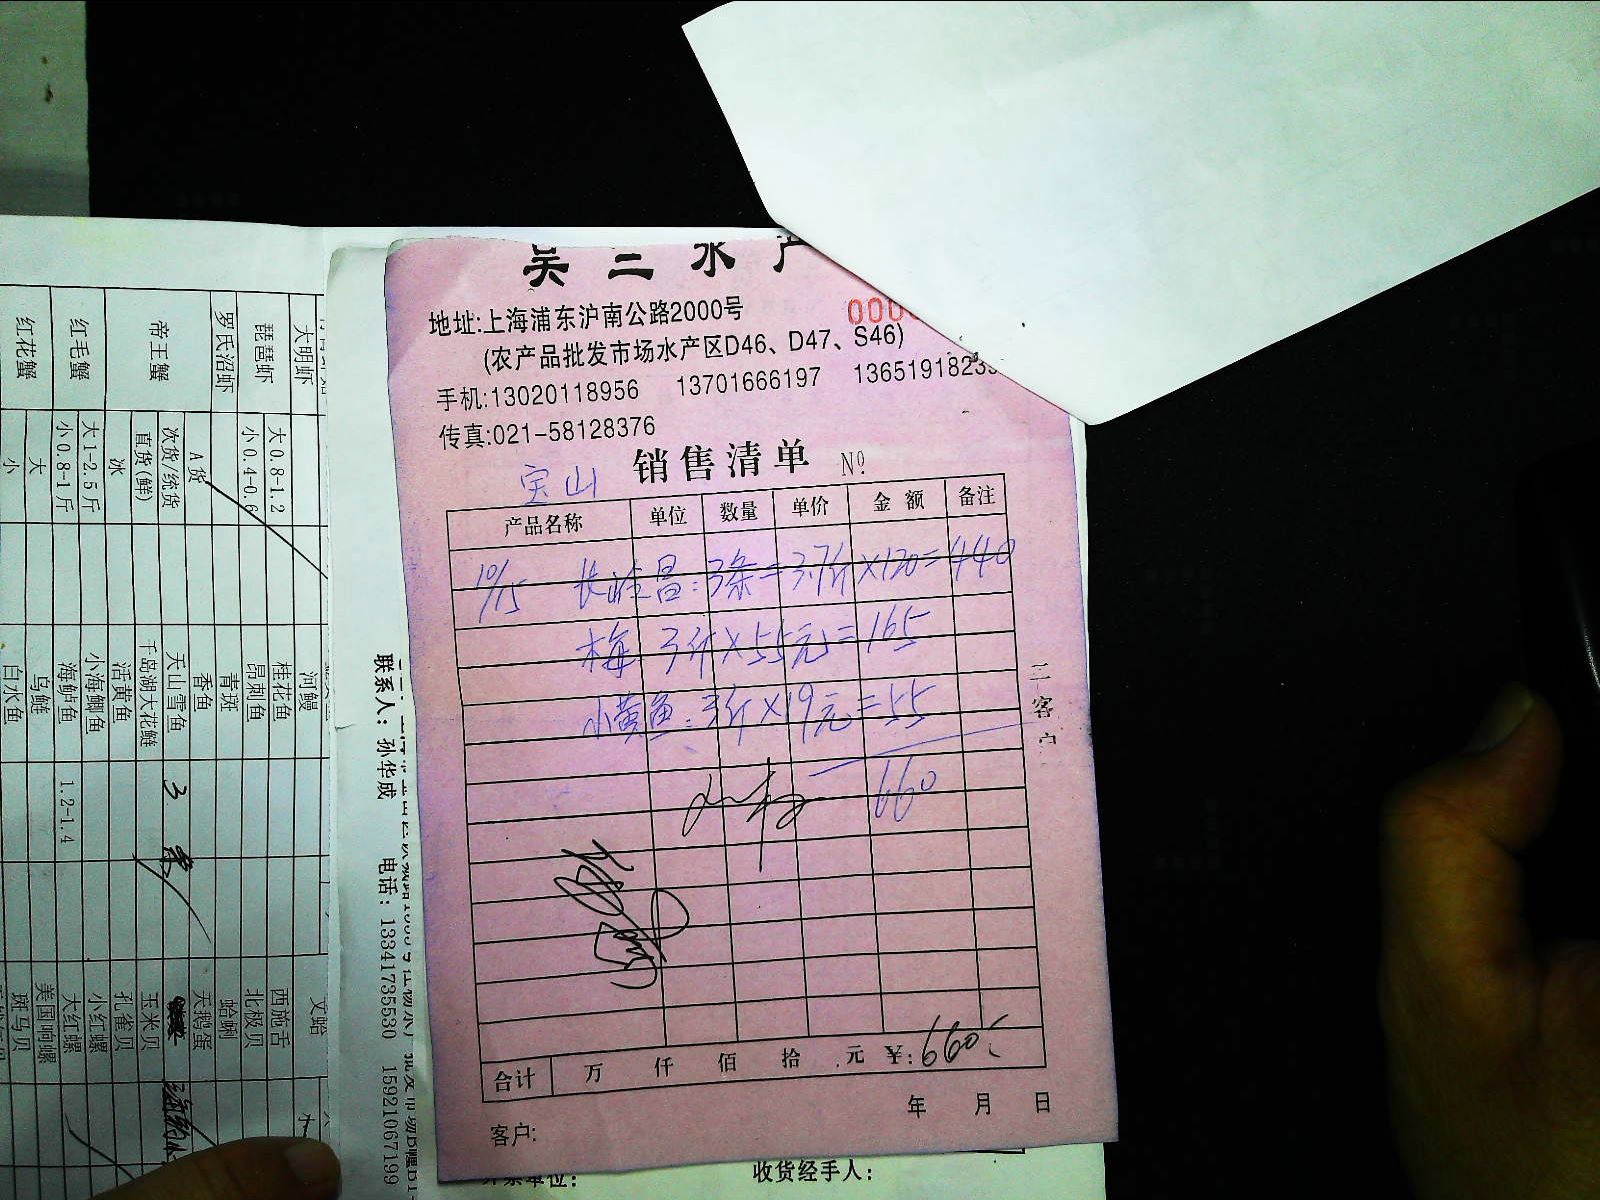 吴三水产
地址:上海浦东沪南公路2000号
000
(农产品批发市场水产区D46、D47、S46)
手机:13020118956 13701666197 1365191823
传真:021-58128376
宝山 销售清单 Nº
产品名称 单位 数量 单价 金额 备注
10/15 长 昌:3条=3.7斤×120=440
梅 3斤×55元=165
小黄鱼:3斤×19元=55
660
二客户
合计 万 仟 佰 拾 元 ¥:660
年 月 日
客户:
收货经手人:
联系人:孙华成 电话:13341735530 15921067199
大明虾
琵琶虾 大0.8-1.2 小0.4-0.6
罗氏沼虾
帝王蟹 A货 次货/统货 直货(鲜) 冰
红毛蟹 大1-2.5斤 小0.8-1斤
红花蟹 大 小
河鳗
桂花鱼
昂刺鱼
青斑
香鱼
天山雪鱼 3条
千岛湖大花鲢
活黄鱼
小海鲫鱼
海鲈鱼 1.2-1.4
乌鲢
白水鱼
文蛤
西施舌
北极贝
蛤蜊
天鹅蛋
玉米贝
孔雀贝
小红螺
大红螺
美国响螺
斑马贝